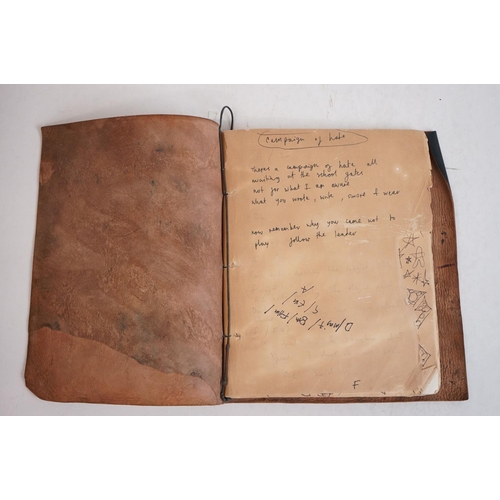 Campaign of hate
Theres a campaign of hate all
waiting at the school gates
not for what I am aware
what you wrote, wear
now remember why you came not to
play follow the leader
D/maj7/Bm/F#m/
G/Em/
A
F